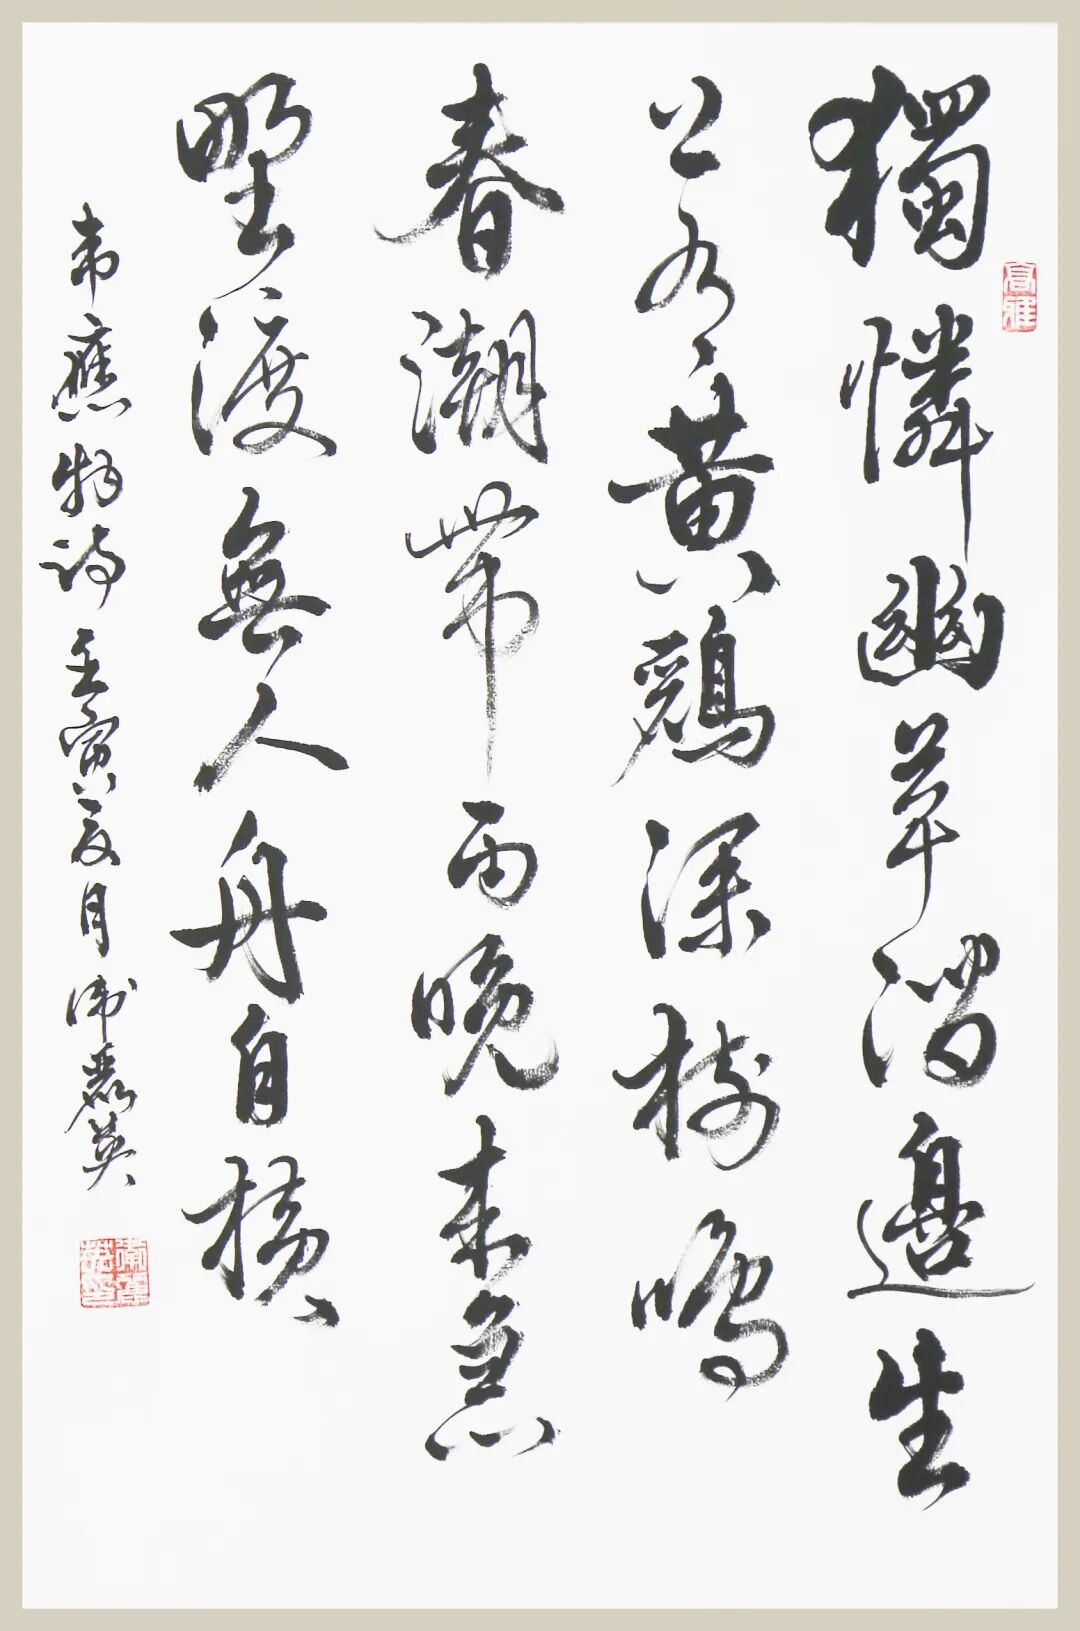 高雅
獨憐幽草澗邊生
上有黃鸝深樹鳴
春潮帶雨晚來急
野渡無人舟自橫
韋應物詩 壬寅夏月 衛麗英